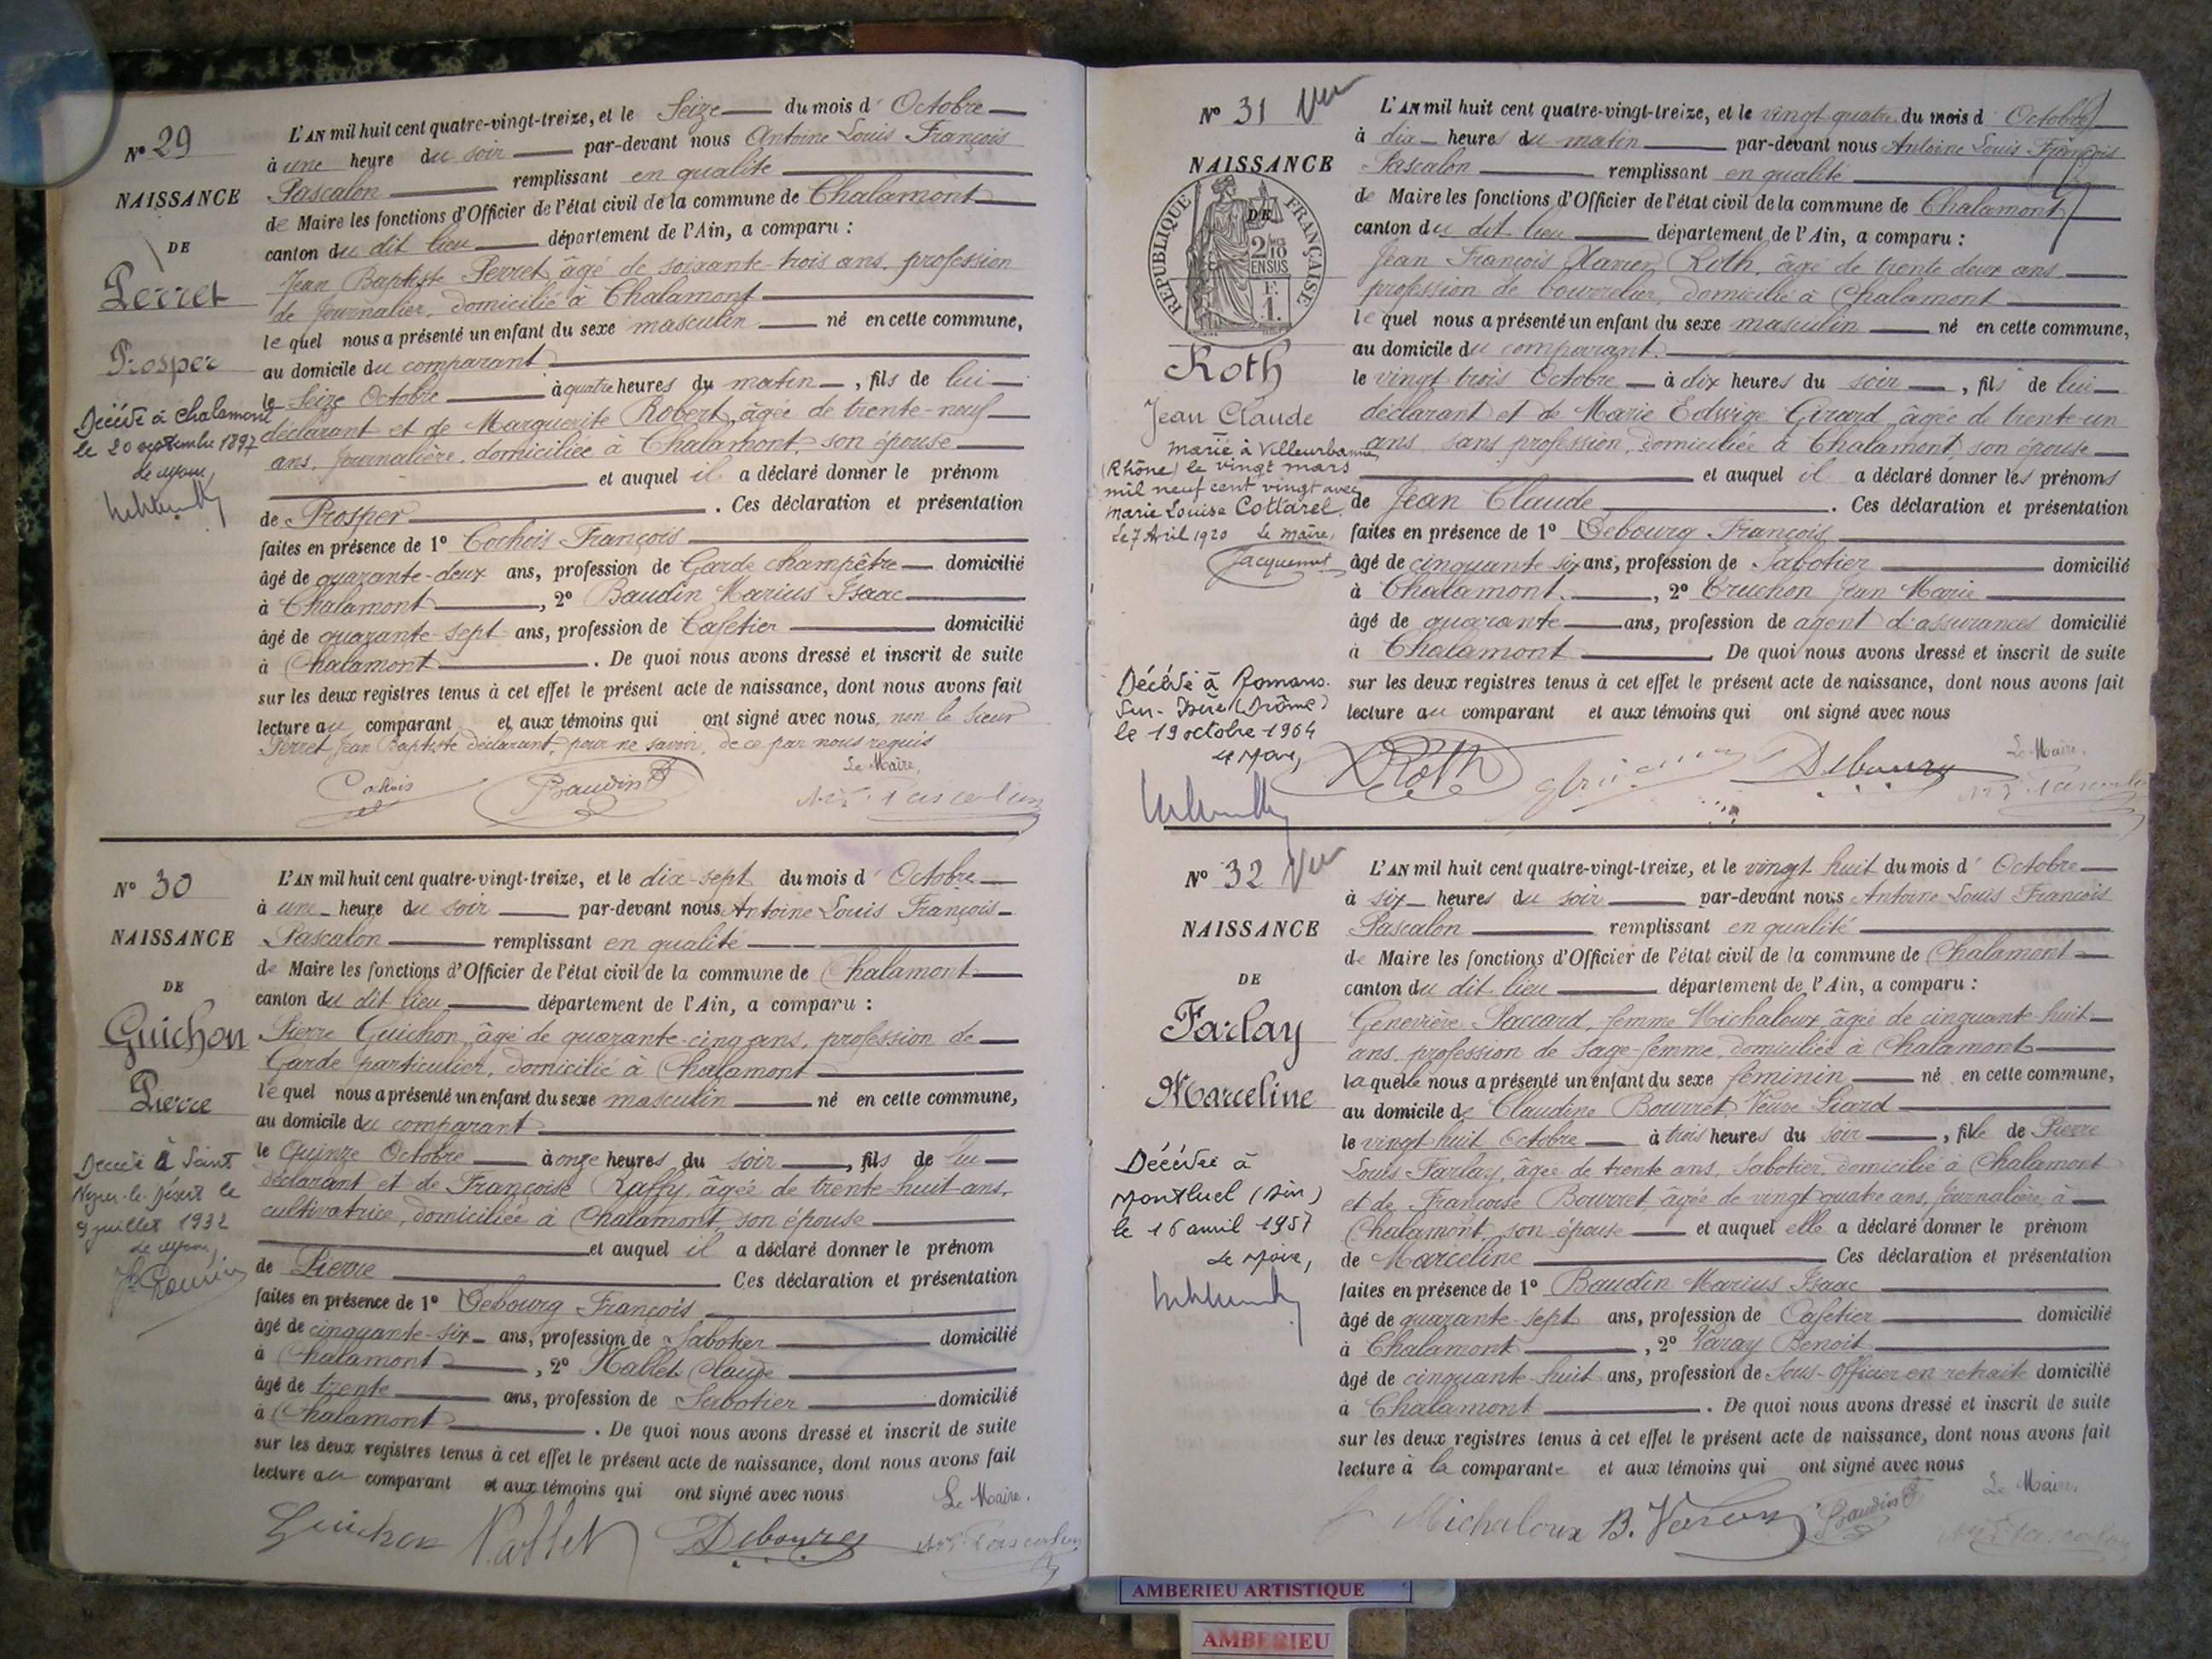 Nº 29
NAISSANCE
DE
Perret
Prosper
Décédé à Chalamont
le 20 septembre 1897
Le Maire,
L'AN mil huit cent quatre-vingt-treize, et le Seize du mois d' Octobre
à une heure du soir par-devant nous Antoine Louis François
Pascalon remplissant en qualité
de Maire les fonctions d'Officier de l'état civil de la commune de Chalamont
canton du dit lieu département de l'Ain, a comparu :
Jean Baptiste Perret, âgé de soixante-trois ans, profession
de Journalier, domicilié à Chalamont
le quel nous a présenté un enfant du sexe masculin né en cette commune,
au domicile du comparant
le Seize Octobre à quatre heures du matin, fils de lui
déclarant et de Marguerite Robert, âgée de trente-neuf
ans, Journalière, domiciliée à Chalamont, son épouse
et auquel il a déclaré donner le prénom
de Prosper. Ces déclaration et présentation
faites en présence de 1º Cochois François
âgé de quarante-deux ans, profession de Garde champêtre domicilié
à Chalamont, 2º Baudin Marius Isaac
âgé de quarante-sept ans, profession de Cafetier domicilié
à Chalamont. De quoi nous avons dressé et inscrit de suite
sur les deux registres tenus à cet effet le présent acte de naissance, dont nous avons fait
lecture au comparant et aux témoins qui ont signé avec nous, non le sieur
Perret Jean Baptiste déclarant, pour ne savoir, de ce par nous requis
Le Maire,
Cochois Baudin Pascalon
Nº 30
NAISSANCE
DE
Guichon
Pierre
Décédé à Saint
le Désert le
9 juillet 1932
Le Maire,
L'AN mil huit cent quatre-vingt-treize, et le dix-sept du mois d' Octobre
à une heure du soir par-devant nous Antoine Louis François
Pascalon remplissant en qualité
de Maire les fonctions d'Officier de l'état civil de la commune de Chalamont
canton du dit lieu département de l'Ain, a comparu :
Pierre Guichon, âgé de quarante-cinq ans, profession de
Garde particulier, domicilié à Chalamont
le quel nous a présenté un enfant du sexe masculin né en cette commune,
au domicile du comparant
le Quinze Octobre à onze heures du soir, fils de lui
déclarant et de Françoise Raffy, âgée de trente-huit ans,
cultivatrice, domiciliée à Chalamont, son épouse
et auquel il a déclaré donner le prénom
de Pierre Ces déclaration et présentation
faites en présence de 1º Debourg François
âgé de cinquante-six ans, profession de Sabotier domicilié
à Chalamont, 2º Nallet Claude
âgé de trente ans, profession de Sabotier domicilié
à Chalamont. De quoi nous avons dressé et inscrit de suite
sur les deux registres tenus à cet effet le présent acte de naissance, dont nous avons fait
lecture au comparant et aux témoins qui ont signé avec nous
Le Maire,
Guichon Nallet Debourg Pascalon
Nº 31 Vu
NAISSANCE
DE
RÉPUBLIQUE FRANÇAISE
2/10 EN SUS
F. 1.
Roth
Jean Claude
Marié à Villeurbanne
(Rhône) le vingt mars
mil neuf cent vingt avec
Marie Louise Cottarel.
Le 7 Avril 1920 Le maire,
Jacquemet
Décédé à Romans-
Sur-Isère (Drôme)
le 19 octobre 1964
Le Maire,
L'AN mil huit cent quatre-vingt-treize, et le vingt quatre du mois d' Octobre
à dix heures du matin par-devant nous Antoine Louis François
Pascalon remplissant en qualité
de Maire les fonctions d'Officier de l'état civil de la commune de Chalamont
canton du dit lieu département de l'Ain, a comparu :
Jean François Xavier Roth, âgé de trente deux ans
profession de bourrelier, domicilié à Chalamont
le quel nous a présenté un enfant du sexe masculin né en cette commune,
au domicile du comparant.
le vingt trois Octobre à dix heures du soir, fils de lui
déclarant et de Marie Edwige Girard, âgée de trente-un
ans, sans profession, domiciliée à Chalamont, son épouse
et auquel il a déclaré donner les prénoms
de Jean Claude. Ces déclaration et présentation
faites en présence de 1º Debourg François
âgé de cinquante six ans, profession de Sabotier domicilié
à Chalamont, 2º Truchon Jean Marie
âgé de quarante ans, profession de agent d'assurances domicilié
à Chalamont. De quoi nous avons dressé et inscrit de suite
sur les deux registres tenus à cet effet le présent acte de naissance, dont nous avons fait
lecture au comparant et aux témoins qui ont signé avec nous
Le Maire,
Roth Debourg Pascalon
Nº 32 Vu
NAISSANCE
DE
Farlay
Marceline
Décédée à
Montluel (Ain)
le 16 avril 1957
Le Maire,
L'AN mil huit cent quatre-vingt-treize, et le vingt huit du mois d' Octobre
à six heures du soir par-devant nous Antoine Louis François
Pascalon remplissant en qualité
de Maire les fonctions d'Officier de l'état civil de la commune de Chalamont
canton du dit lieu département de l'Ain, a comparu :
Geneviève Paccard, femme Michaloux, âgée de cinquante-huit
ans, profession de Sage-femme, domiciliée à Chalamont
la quelle nous a présenté un enfant du sexe féminin né en cette commune,
au domicile de Claudine Bouvret Veuve Licard
le vingt huit Octobre à trois heures du soir, fille de Pierre
Louis Farlay, âgé de trente ans, Sabotier, domicilié à Chalamont
et de Françoise Bouvret, âgée de vingt quatre ans, Journalière, à
Chalamont, son épouse et auquel elle a déclaré donner le prénom
de Marceline Ces déclaration et présentation
faites en présence de 1º Baudin Marius Isaac
âgé de quarante-sept ans, profession de Cafetier domicilié
à Chalamont, 2º Varay Benoit
âgé de cinquante-huit ans, profession de Sous-Officier en retraite domicilié
à Chalamont. De quoi nous avons dressé et inscrit de suite
sur les deux registres tenus à cet effet le présent acte de naissance, dont nous avons fait
lecture à la comparante et aux témoins qui ont signé avec nous
Le Maire,
Michaloux B. Varay Baudin
AMBERIEU ARTISTIQUE
AMBERIEU